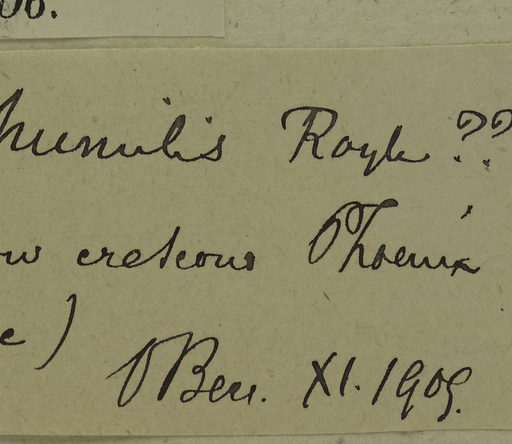 06.
humilis Royle ??
ow creteous Phoenix
e)
OBecc. XI. 1909.